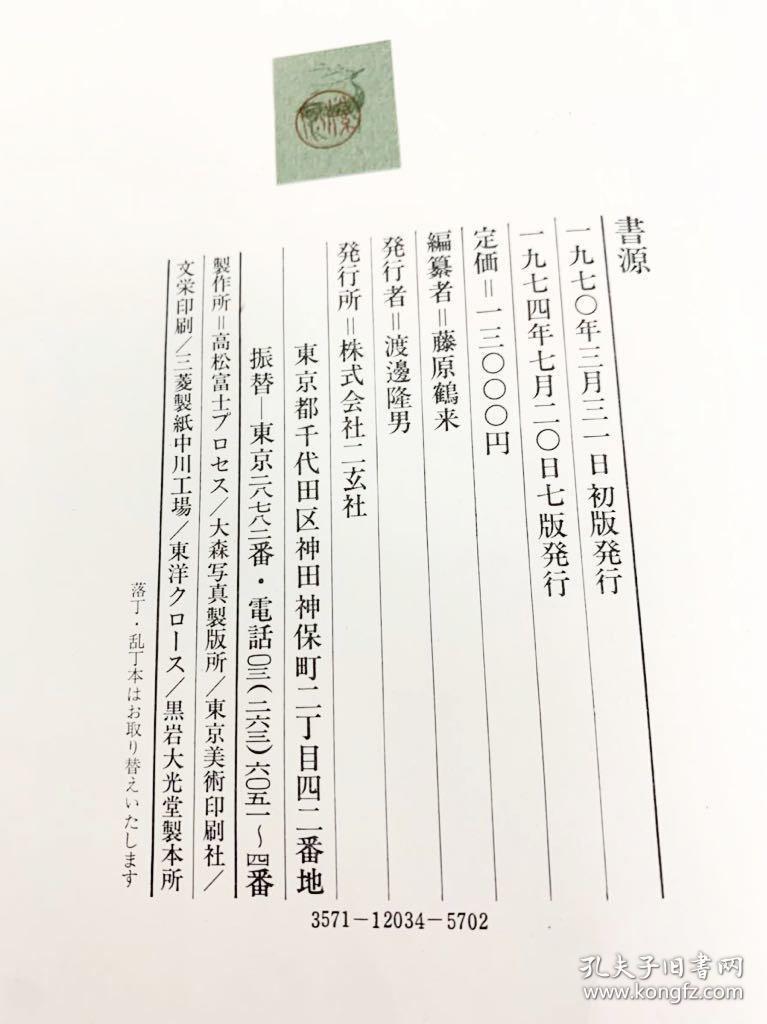 書源
一九七〇年三月三一日初版発行
一九七四年七月二〇日七版発行
定価＝一三〇〇〇円
編纂者＝藤原鶴来
発行者＝渡邊隆男
発行所＝株式会社二玄社
東京都千代田区神田神保町二丁目四二番地
振替—東京二八七八二番・電話〇三(二六三)六〇五一〜四番
製作所＝高松富士プロセス/大森写真製版所/東京美術印刷社/
文栄印刷/三菱製紙中川工場/東洋クロース/黒岩大光堂製本所
落丁・乱丁本はお取り替えいたします
3571-12034-5702
孔夫子旧书网
www.kongfz.com